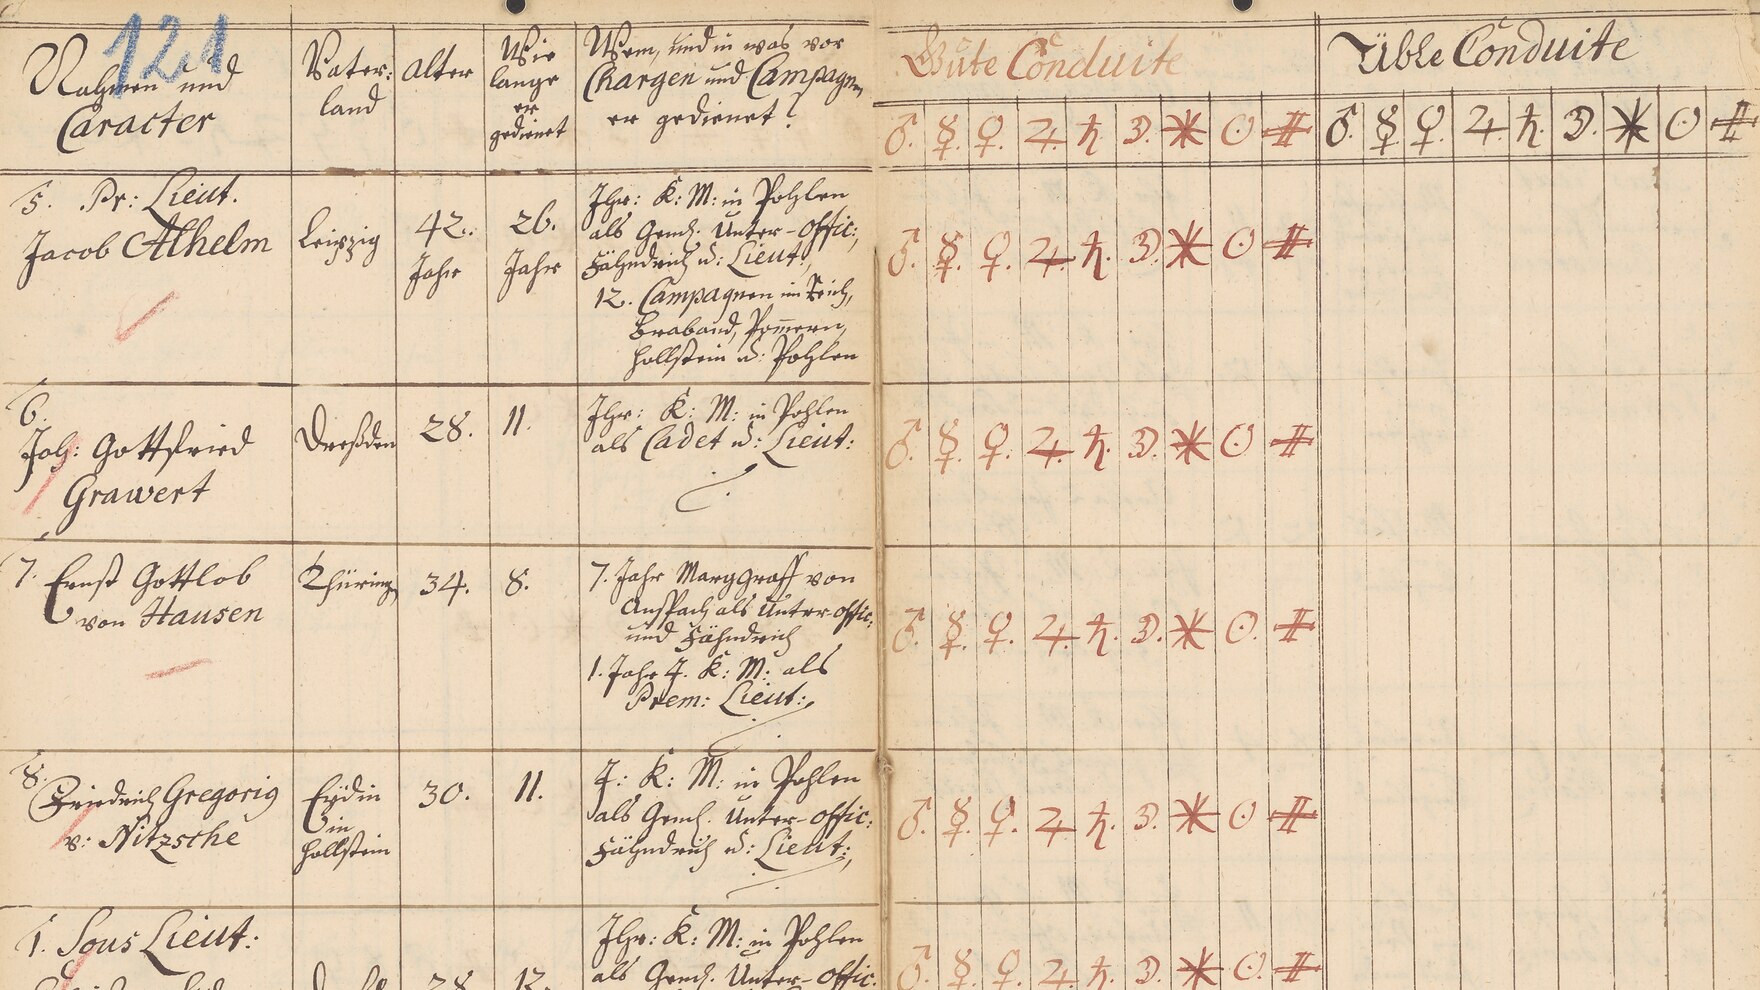 121
Nahmen und
Caracter
Vater-
land
Alter
Wie
lange
er
gedienet
Wem, und in was vor
Chargen und Campagnen
er gedienet?
Gute Conduite
Üble Conduite
♂. ☿. ♀. ♃. ♄. ☽. ⚹ ☉
♂. ☿. ♀. ♃. ♄. ☽. ⚹ ☉
5. Pr: Lieut.
Jacob Alhelm
Leipzig
42.
Jahr
26.
Jahr
Ihr: K: M: in Pohlen
als Gem. Unter-Offic:,
Fähndrich u: Lieut:,
12. Campagnen im Reich,
Braband, Pom̄ern,
Hollstein u: Pohlen
♂. ☿. ♀. ♃. ♄. ☽. ⚹ ☉
6.
Joh: Gottfried
Grawert
Dreßden
28.
11.
Ihr: K: M: in Pohlen
als Cadet u: Lieut:
♂. ☿. ♀. ♃. ♄. ☽. ⚹ ☉
7. Ernst Gottlob
von Hausen
Thüringen
34.
8.
7. Jahr Marggraff von
Anspach als Unter-Offic:
und Fähndrich
1. Jahr J. K: M: als
Prem: Lieut:
♂. ☿. ♀. ♃. ♄. ☽. ⚹ ☉
8.
Friedrich Gregorig
v: Nitzsche
in
Hollstein
30.
11.
J: K: M: in Pohlen
als Gem. Unter-Offic:
Fähndrich u: Lieut:,
♂. ☿. ♀. ♃. ♄. ☽. ⚹ ☉
1. Sous Lieut:
Ihr: K: M: in Pohlen
als Gem. Unter-Offic.
28.
♂. ☿. ♀. ♃. ♄. ☽. ⚹ ☉